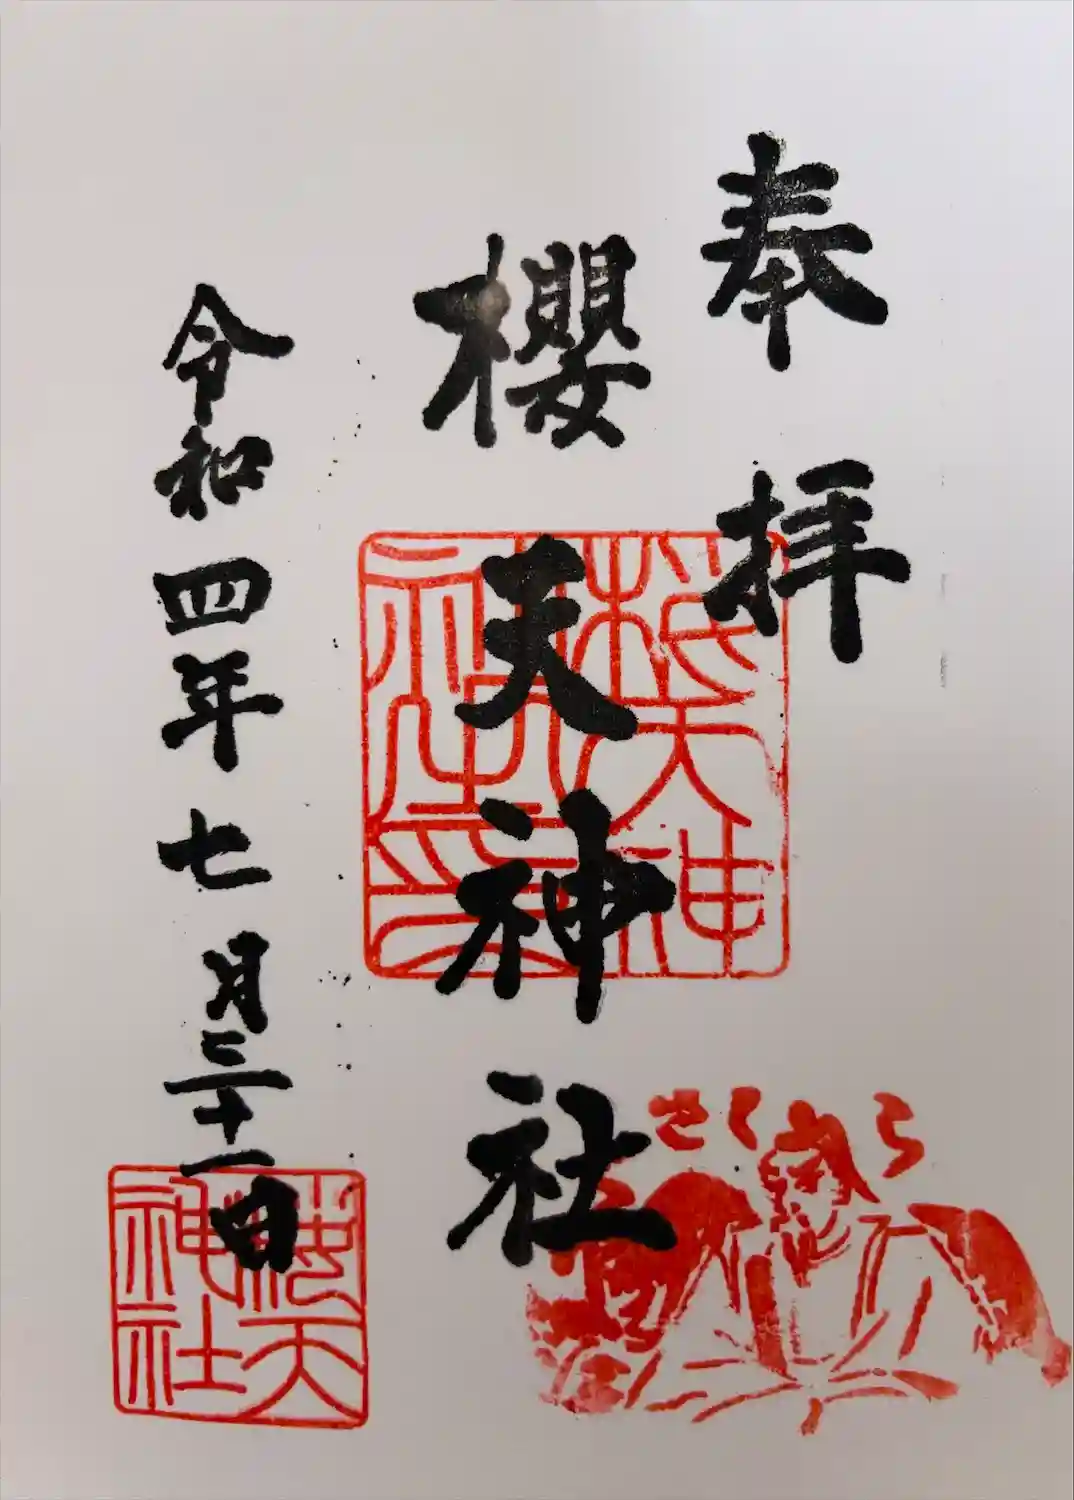 奉拝
櫻天神社
令和四年七月三十一日
さくら
櫻天神社印
櫻天神社